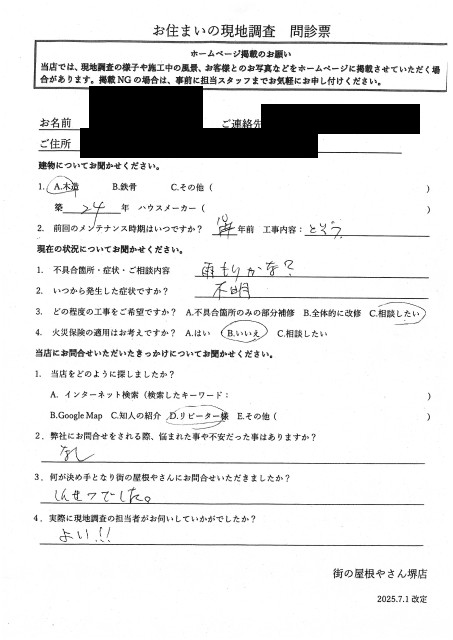 お住まいの現地調査　問診票
ホームページ掲載のお願い
当店では、現地調査の様子や施工中の風景、お客様とのお写真などをホームページに掲載させていただく場
合があります。掲載 NG の場合は、事前に担当スタッフまでお気軽にお申し付けください。
お名前　ご連絡先
ご住所
建物についてお聞かせください。
1. A.木造　B.鉄骨　C.その他（　）
築 24 年　ハウスメーカー（　）
2. 前回のメンテナンス時期はいつですか？ 10 年前　工事内容：とそう
現在の状況についてお聞かせください。
1. 不具合箇所・症状・ご相談内容　雨もりかな？
2. いつから発生した症状ですか？　不明
3. どの程度の工事をご希望ですか？ A.不具合箇所のみの部分補修 B.全体的に改修 C.相談したい
4. 火災保険の適用はお考えですか？ A.はい B.いいえ C.相談したい
当店にお問合せいただいたきっかけについてお聞かせください。
1. 当店をどのように探しましたか？
A. インターネット検索（検索したキーワード：　）
B.Google Map C.知人の紹介 D.リピーター様 E.その他（　）
2. 弊社にお問合せをされる際、悩まれた事や不安だった事はありますか？
なし
3. 何が決め手となり街の屋根やさんにお問合せいただきましたか？
しんせつでした。
4. 実際に現地調査の担当者がお伺いしていかがでしたか？
よい!!
街の屋根やさん堺店
2025.7.1 改定